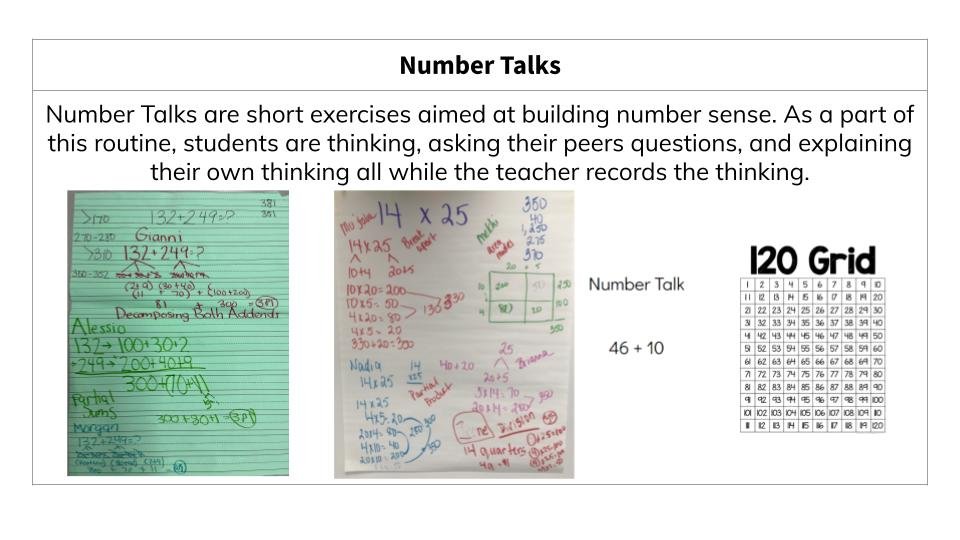 Number Talks
Number Talks are short exercises aimed at building number sense. As a part of
this routine, students are thinking, asking their peers questions, and explaining
their own thinking all while the teacher records the thinking.
>170 132+249=?
381
351
270-280 Gianni
>310 132+249=?
350-352
(2+9) (30+40) + (100+200)
(11 + 70)
81 + 300 = 381
Decomposing Both Addends
Alessio
132→ 100+30+2
+249→ 200+40+9
300+(70+11)
Partial
Sums
300+80+1=381
Morgan
132+249=?
14 x 25
350
40
1,250
275
370
14x25
Break
apart
10+4 20+5
10x20=200
10x5=50
4x20=80
4x5=20
330+20=350
area
model
20 + 5
10 200 250
4 80 20 100
350
Nadia
14x25
14
x25
Partial
Product
14x25
4x5=20
20x4=80
4x10=40
20x10=200
40+20
25
Brianna
20+5
5x14=70
20x14=280
350
14 quarters
Number Talk
46 + 10
120 Grid
1 2 3 4 5 6 7 8 9 10
11 12 13 14 15 16 17 18 19 20
21 22 23 24 25 26 27 28 29 30
31 32 33 34 35 36 37 38 39 40
41 42 43 44 45 46 47 48 49 50
51 52 53 54 55 56 57 58 59 60
61 62 63 64 65 66 67 68 69 70
71 72 73 74 75 76 77 78 79 80
81 82 83 84 85 86 87 88 89 90
91 92 93 94 95 96 97 98 99 100
101 102 103 104 105 106 107 108 109 110
111 112 113 114 115 116 117 118 119 120